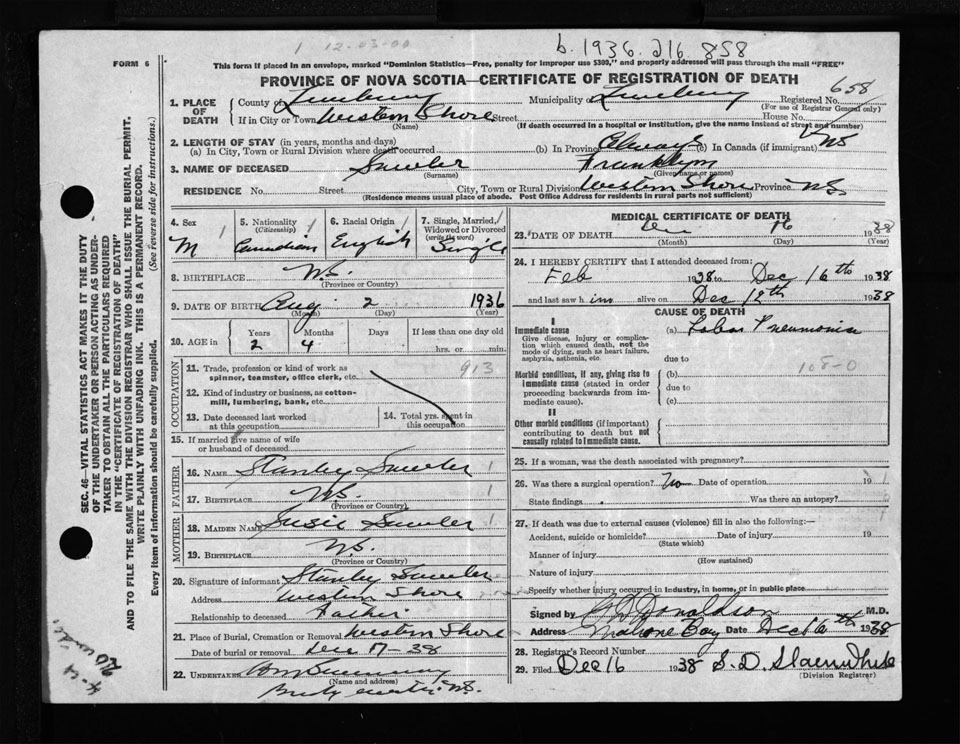 1 12-03-00
b. 1936. 216 858
FORM 6
This form if placed in an envelope, marked "Dominion Statistics—Free, penalty for improper use $300," and properly addressed will pass through the mail "FREE"
PROVINCE OF NOVA SCOTIA—CERTIFICATE OF REGISTRATION OF DEATH
658
1. PLACE OF DEATH County of Lunenburg Municipality of Lunenburg Registered No.
(For use of Registrar General only)
If in City or Town Western Shore Street House No.
(Name) (If death occurred in a hospital or institution, give the name instead of street and number)
2. LENGTH OF STAY (in years, months and days)
(a) In City, Town or Rural Division where death occurred (b) In Province Always (c) In Canada (if immigrant) NS
3. NAME OF DECEASED Franklyn
(Surname) (Given name or names)
RESIDENCE No. Street City, Town or Rural Division Western Shore Province NS
(Residence means usual place of abode. Post Office Address for residents in rural parts not sufficient)
4. Sex 1
M
5. Nationality 1
(Citizenship)
Canadian
6. Racial Origin 1
English
7. Single, Married, 1
Widowed or Divorced
(write the word)
Single
8. BIRTHPLACE N.S.
(Province or Country)
9. DATE OF BIRTH Aug 2 1936
(Month) (Day) (Year)
10. AGE in Years Months Days If less than one day old
2 4 hrs. or min.
OCCUPATION
11. Trade, profession or kind of work as
spinner, teamster, office clerk, etc. 913
12. Kind of industry or business, as cotton-
mill, lumbering, bank, etc.
13. Date deceased last worked
at this occupation
14. Total yrs. spent in
this occupation
15. If married give name of wife
or husband of deceased
FATHER
16. NAME Stanley 1
17. BIRTHPLACE N.S. 1
(Province or Country)
MOTHER
18. MAIDEN NAME Susie 1
19. BIRTHPLACE N.S.
(Province or Country)
20. Signature of informant Stanley
Address Western Shore
Relationship to deceased Father
21. Place of Burial, Cremation or Removal Western Shore
Date of burial or removal Dec 17-38
22. UNDERTAKER
(Name and address)
N.S.
MEDICAL CERTIFICATE OF DEATH
23. DATE OF DEATH Dec 16 1938
(Month) (Day) (Year)
24. I HEREBY CERTIFY that I attended deceased from:
Feb 1938 to Dec 16th 1938
and last saw him alive on Dec 12th 1938
CAUSE OF DEATH
I
Immediate cause (a) Lobar Pneumonia
Give disease, injury or compli-
cation which caused death, not the
mode of dying, such as heart failure,
asphyxia, asthenia, etc.
due to
108-0
Morbid conditions, if any, giving rise to
immediate cause (stated in order
proceeding backwards from im-
mediate cause).
(b)
due to
(c)
II
Other morbid conditions (if important)
contributing to death but not
causally related to immediate cause.
25. If a woman, was the death associated with pregnancy?
26. Was there a surgical operation? No Date of operation 19
State findings Was there an autopsy?
27. If death was due to external causes (violence) fill in also the following:—
Accident, suicide or homicide? Date of injury 19
(State which)
Manner of injury
(How sustained)
Nature of injury
Specify whether injury occurred in industry, in home, or in public place
Signed by Donaldson M.D.
Address Mahone Bay Date Dec 16th 1938
28. Registrar's Record Number
29. Filed Dec 16 1938 S. D. Slaenwhite
(Division Registrar)
SEC. 46—VITAL STATISTICS ACT MAKES IT THE DUTY
OF THE UNDERTAKER OR PERSON ACTING AS UNDER-
TAKER TO OBTAIN ALL THE PARTICULARS REQUIRED
IN THE "CERTIFICATE OF REGISTRATION OF DEATH"
AND TO FILE THE SAME WITH THE DIVISION REGISTRAR WHO SHALL ISSUE THE BURIAL PERMIT.
WRITE PLAINLY WITH UNFADING INK. THIS IS A PERMANENT RECORD.
Every item of information should be carefully supplied. (See reverse side for instructions.)